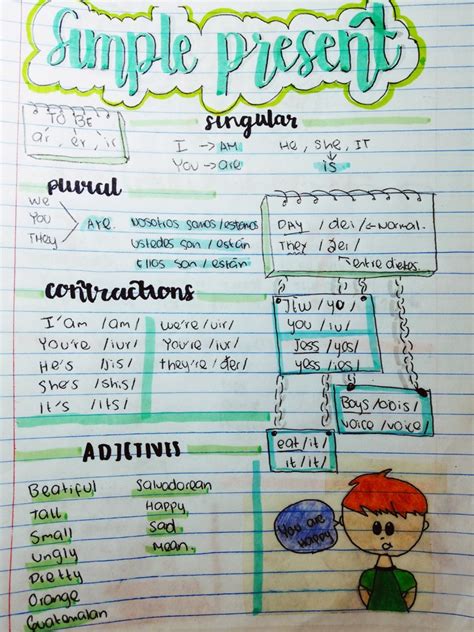 Simple present
TO BE
ar, er, ir
singular
I → AM
You → are
He, She, IT
is
plural
WE
YOU
THEY
Are.
Nosotros somos/estamos
Ustedes son / están
Ellos son / están
DAY / dei/ Normal.
They / ðei /
entre dietes.
contractions
I'am /am/
You're /iur/
He's /jis/
She's /shis/
It's /its/
we're /uir/
You're /iur/
they're / der/
/yo/
you / iu/
Jess / yes/
yess /ies/
Boys /bois/
voice /voice/
eat /it/
it / it/
ADJETIVES
Beatiful
Tall
Small
Ungly
Pretty
Orange
Guatemalan
Salvodorean
Happy,
Sad
Mean.
You are
happy